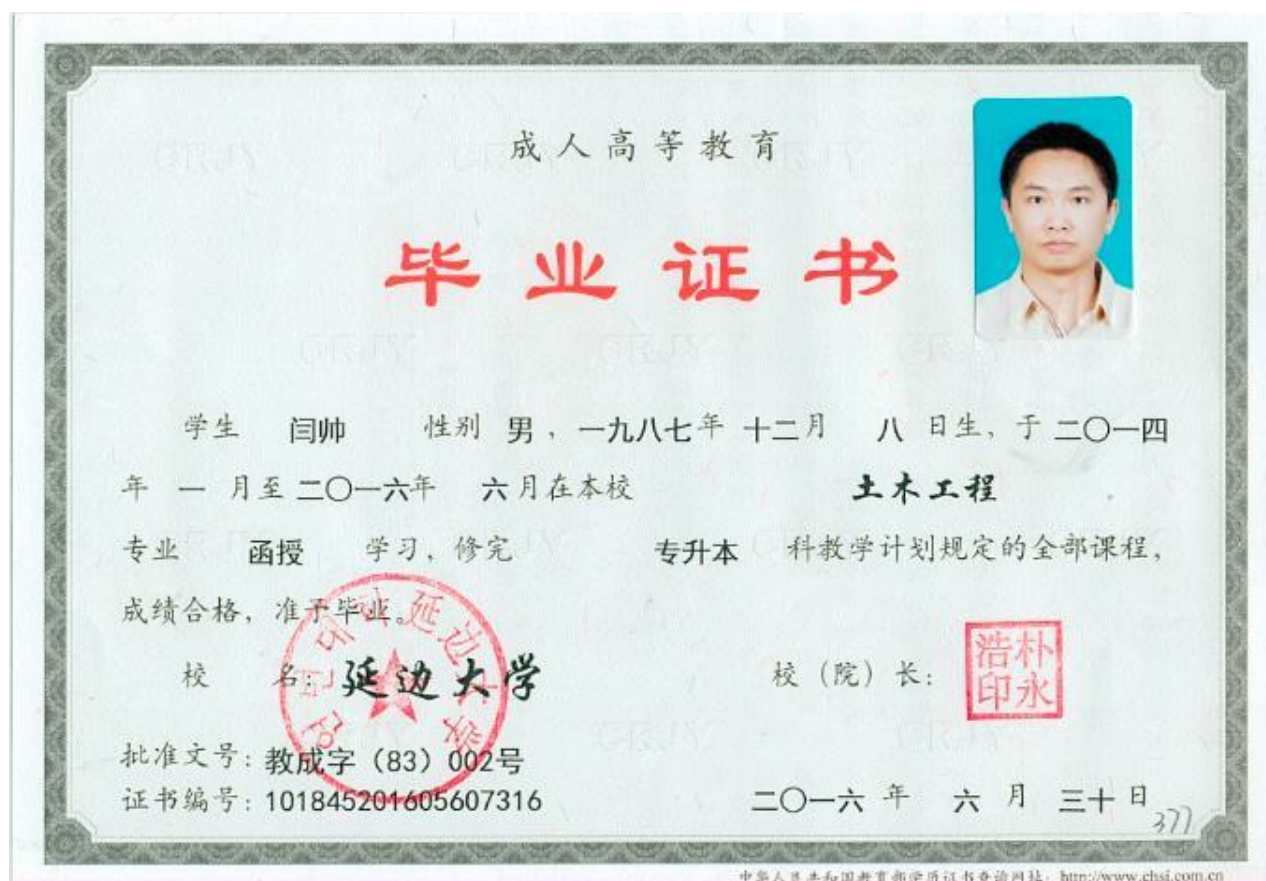 成人高等教育
毕业证书
学生 闫帅 性别 男，一九八七年 十二月 八 日生，于 二〇一四
年 一 月至 二〇一六年 六月在本校 土木工程
专业 函授 学习，修完 专升本 科教学计划规定的全部课程，
成绩合格，准予毕业。
校 名：延边大学 校（院）长：
朴永浩印
연변대학 延边大学
批准文号：教成字（83）002号
证书编号：101845201605607316 二〇一六 年 六 月 三十 日
377
中华人民共和国教育部学历证书查询网址：http://www.chsi.com.cn